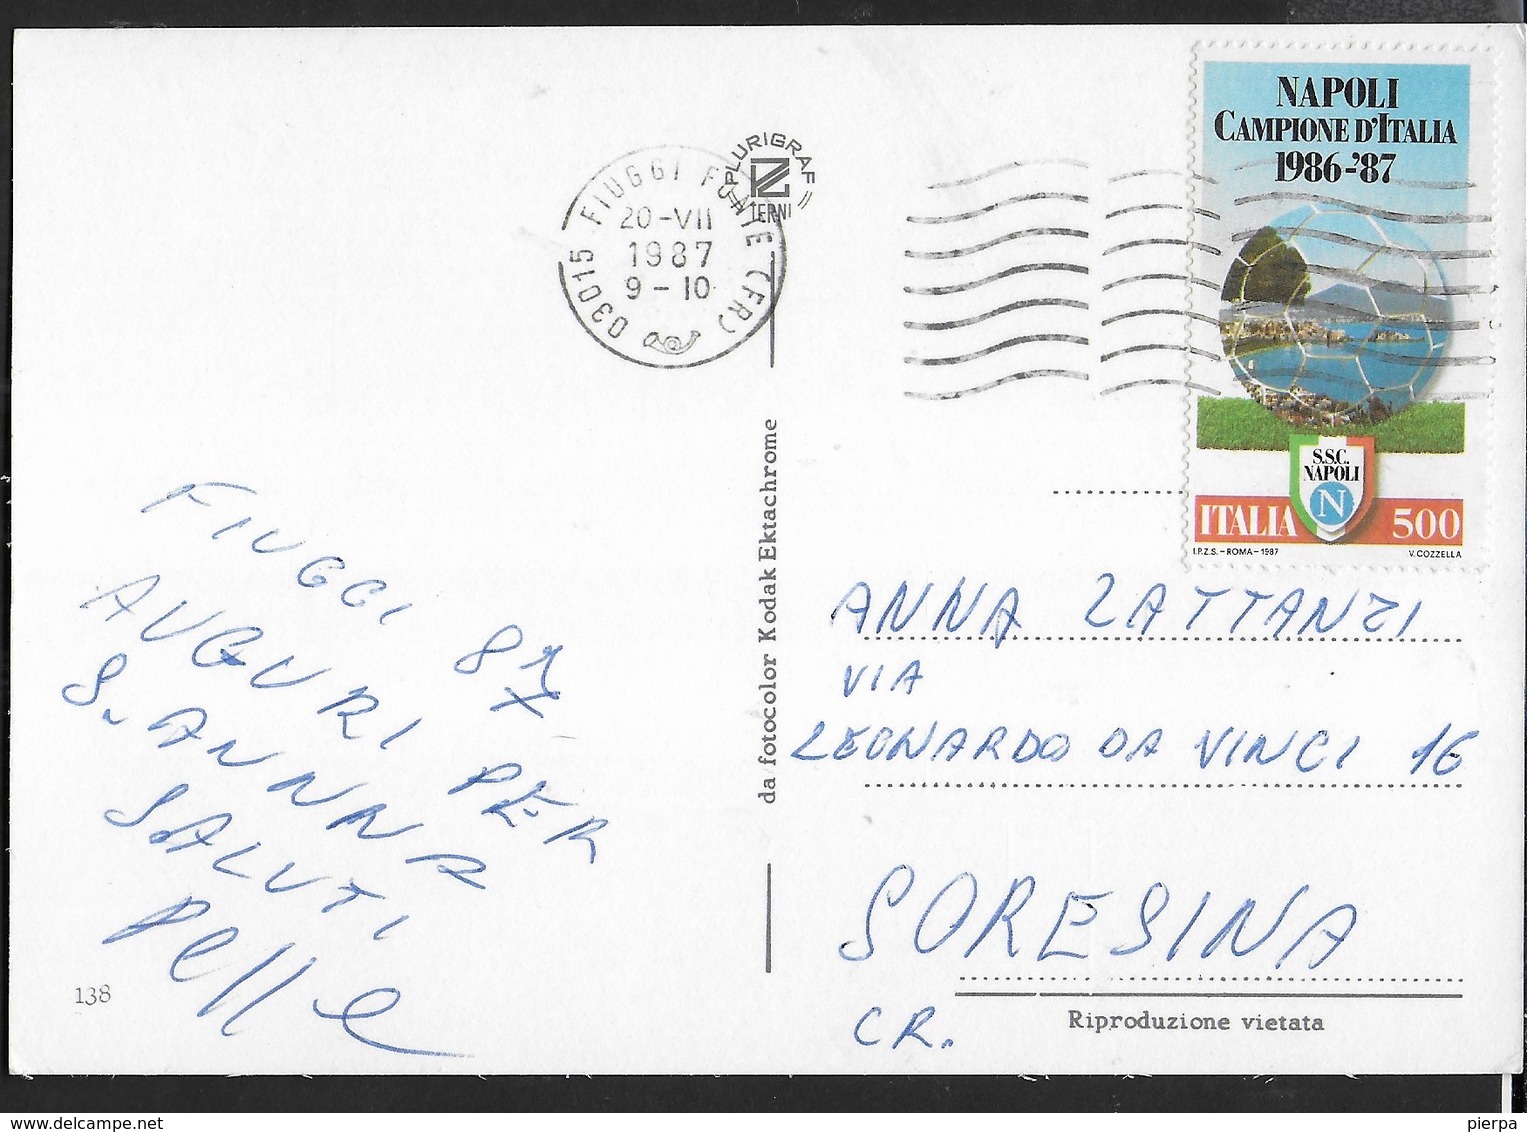 NAPOLI
CAMPIONE D'ITALIA
1986-'87
S.S.C.
NAPOLI
N
ITALIA 500
I.P.Z.S. - ROMA - 1987 V. COZZELLA
PLURIGRAF
TERNI
03015 FIUGGI FONTE (FR)
20-VII
1987
9-10
FIUGGI 87
AUGURI PER
S. ANNA
SALUTI
138
da fotocolor Kodak Ektachrome
ANNA ZATTANZI
VIA
LEONARDO DA VINCI 16
SORESINA
CR.
Riproduzione vietata
delcampe.net
pierpa